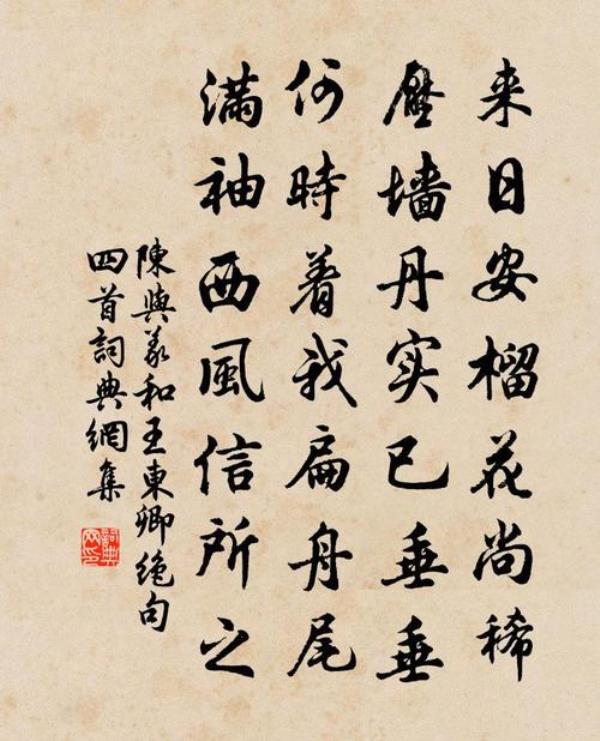 来日安榴花尚稀
壓墙丹实已垂垂
何時着我扁舟尾
满袖西風信所之
陳與義和王東卿绝句
四首詞典網集